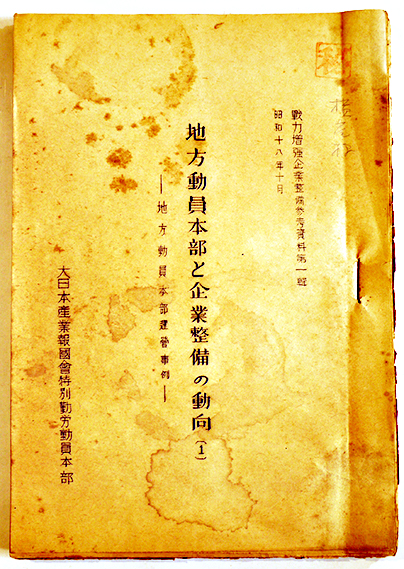 戰力增强企業整備參考資料第一輯
昭和十八年十月
地方動員本部と企業整備の動向(1)
―地方動員本部運營事例―
大日本產業報國會特別勤労動員本部